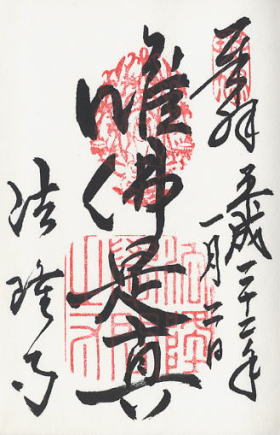 奉拝
平成二十二年
一月二日
唯佛是真
法隆寺